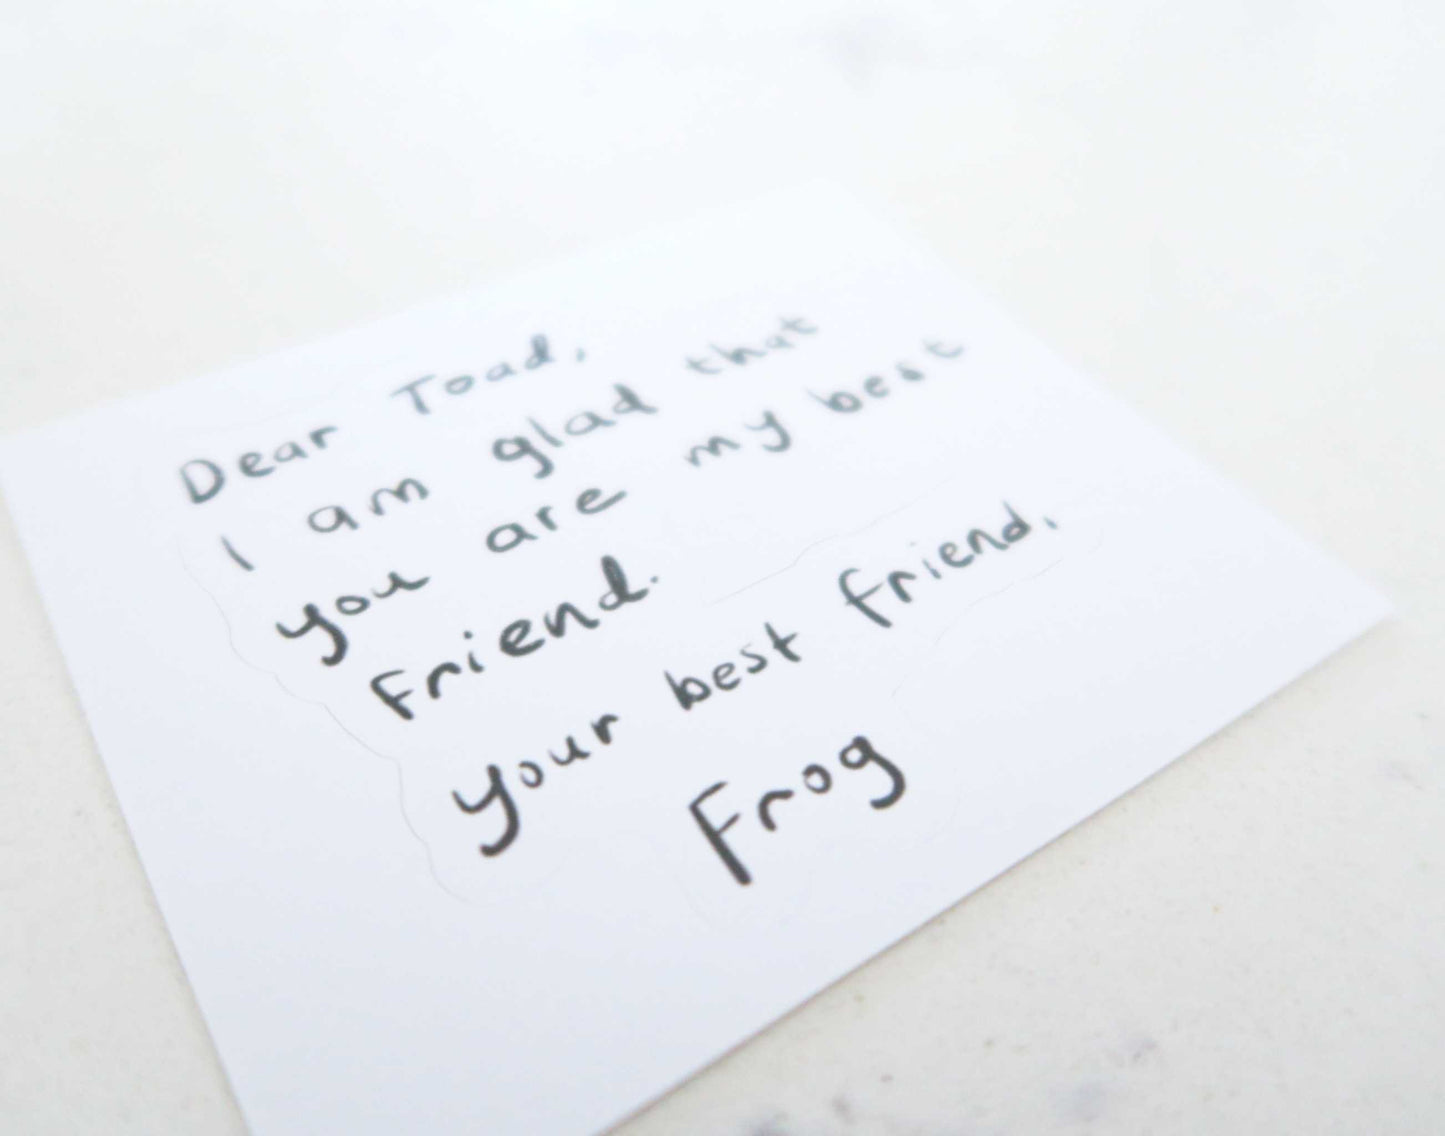 Dear Toad,
I am glad that
you are my best
Friend.
your best friend,
Frog